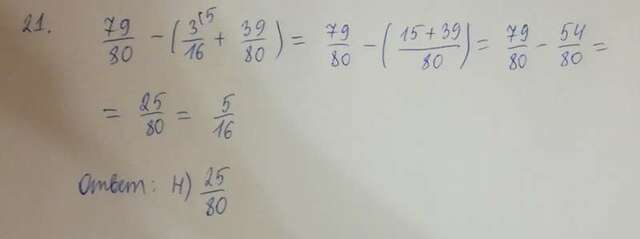 21. 79/80 - (3⁽⁵/16 + 39/80) = 79/80 - (15+39/80) = 79/80 - 54/80 =
= 25/80 = 5/16
Ответ: H) 25/80